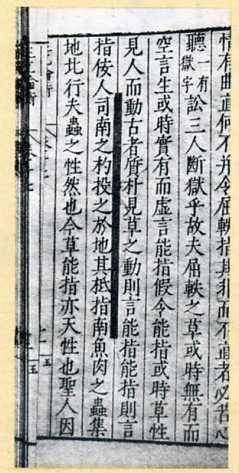 情有曲直何不并令屈軼指其非而不直者必苦心
聽一有獄字訟三人斷獄乎故夫屈軼之草或時無有而
空言生或時實有而虛言能指假令能指或時草性
見人而動古者質朴見草之動則言能指能指則言
指佞人司南之杓投之於地其柢指南魚肉之蟲集
地北行夫蟲之性然也今草能指亦天性也聖人因
五